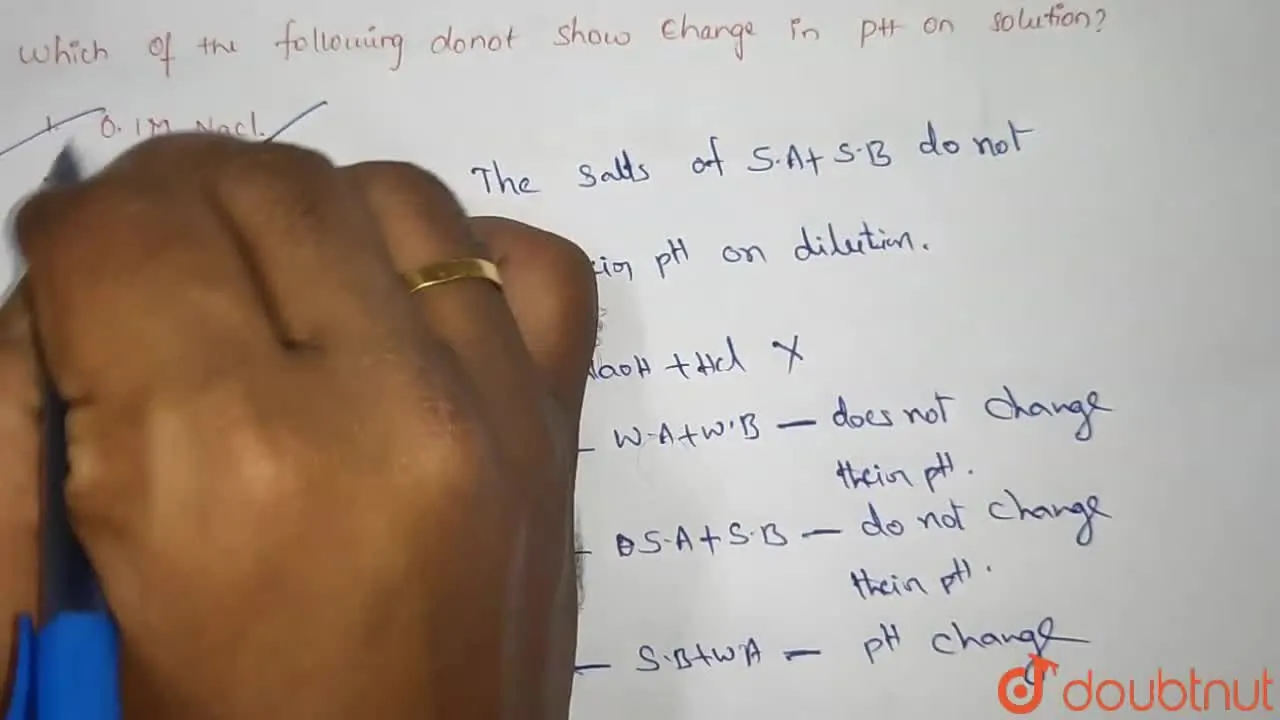 Which of the following donot show change in pH on solution?
1. 0.1M Nacl.
The salts of S.A+ S.B do not
pH on dilution.
+ Hcl X
- W.A+W.B - does not change
their pH.
- S.A+S.B - do not change
their pH.
- S.B+W.A - pH change
doubtnut